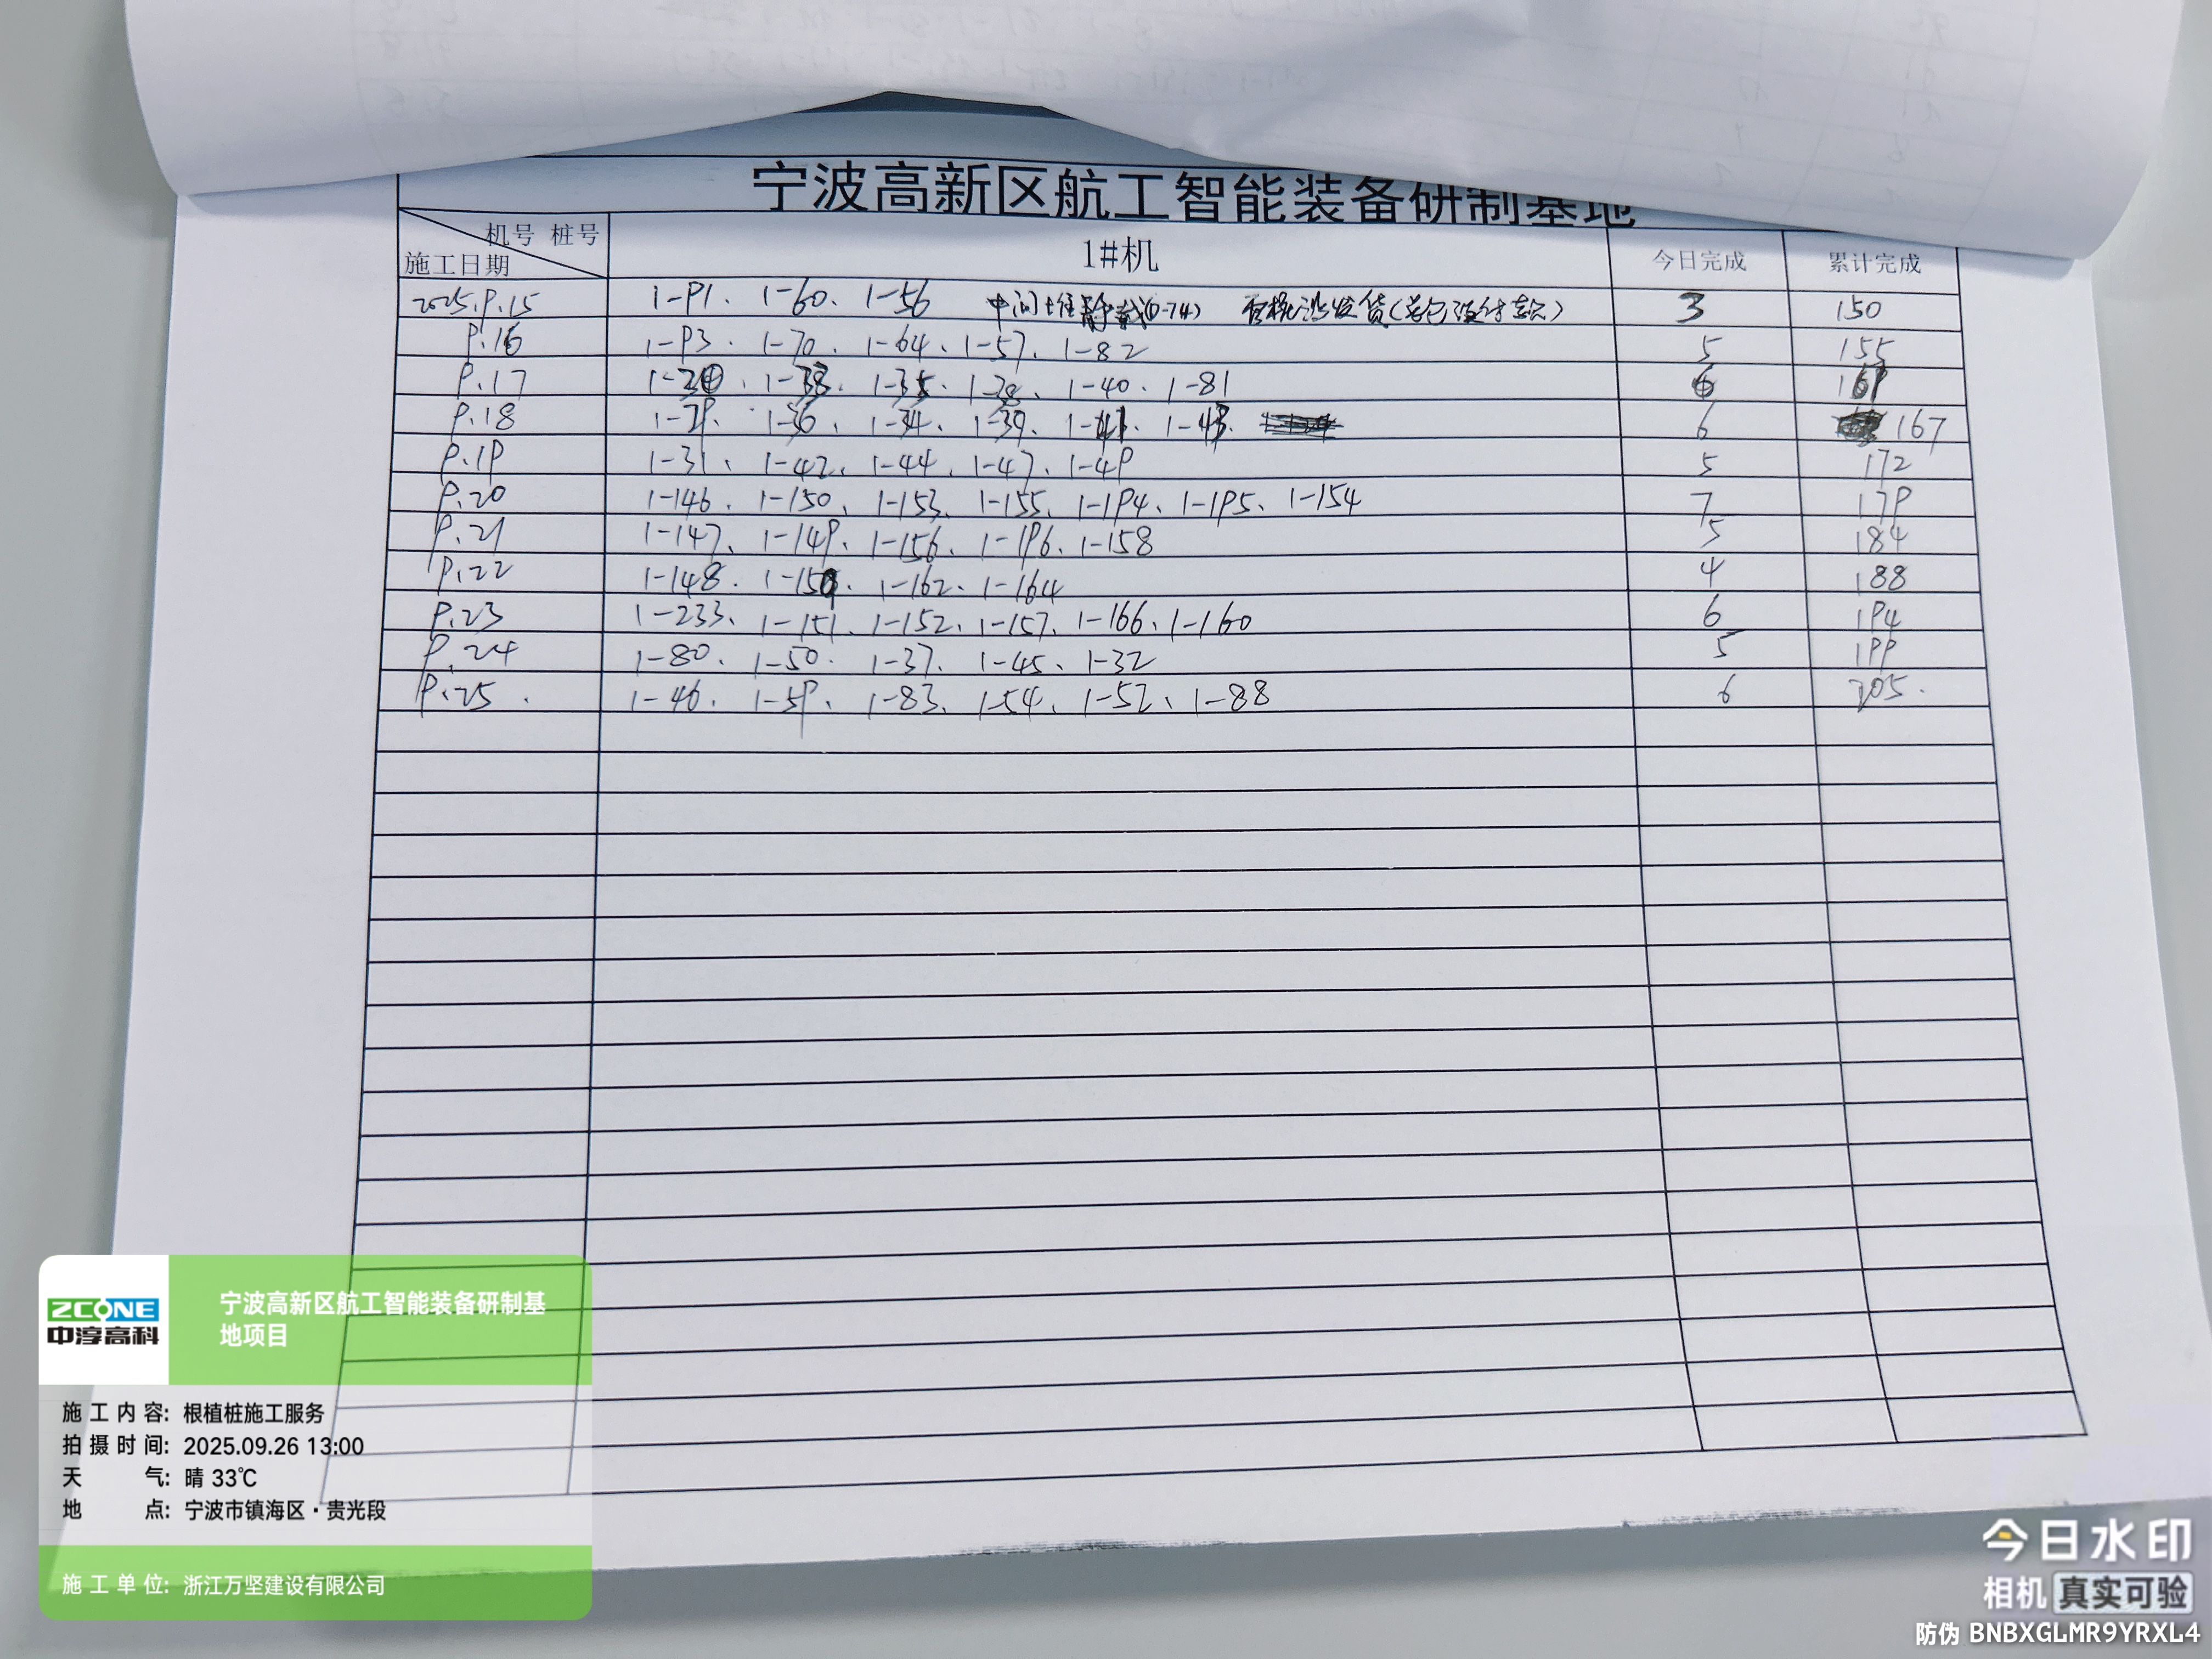 宁波高新区航工智能装备研制基地
机号 桩号
施工日期
1#机
今日完成
累计完成
2025.9.15 1-91、1-60、1-56 中间堆静载(1-74) 3 150
9.16 1-93、1-70、1-64、1-57、1-82 5 155
9.17 1-33、1-35、1-40、1-81 6
9.18 1-29、1-36、1-34、1-39、1-41、1-43、 6 167
9.19 1-31、1-42、1-44、1-47、1-49 5 172
9.20 1-146、1-150、1-153、1-155、1-194、1-195、1-154 7 179
9.21 1-147、1-149、1-156、1-196、1-158 5 184
9.22 1-148、1-162、1-164 4 188
9.23 1-233、1-151、1-152、1-157、1-166、1-160 6 194
9.24 1-80、1-50、1-37、1-45、1-32 5 199
9.25. 1-46、1-59、1-83、1-54、1-52、1-88 6 205.
ZCONE
中淳高科
宁波高新区航工智能装备研制基
地项目
施工内容: 根植桩施工服务
拍摄时间: 2025.09.26 13:00
天气: 晴 33℃
地点: 宁波市镇海区·贵光段
施工单位: 浙江万坚建设有限公司
今日水印
相机 真实可验
防伪 BNBXGLMR9YRXL4